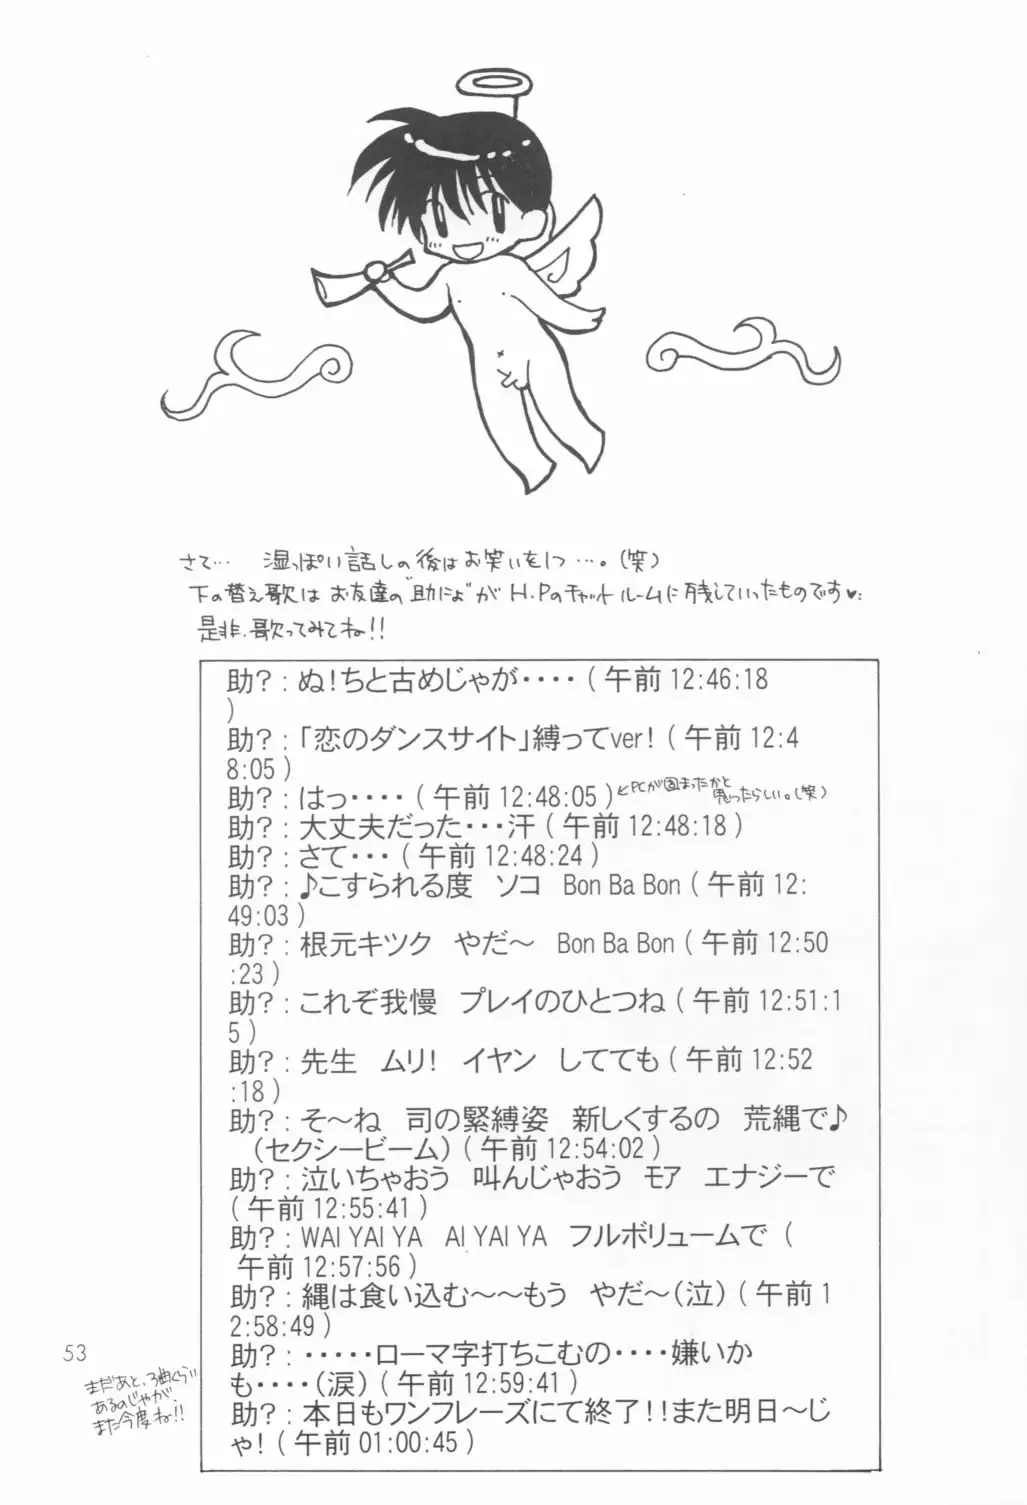 さて… 湿っぽい話しの後はお笑いを1つ…。(笑)
下の替え歌は お友達の"助にょ"が H.Pのチャットルームに残していったものです♥
是非、歌ってみてね!!
助?:ぬ!ちと古めじゃが‥‥(午前12:46:18
)
助?:「恋のダンスサイト」縛ってver!(午前12:4
8:05)
助?:はっ‥‥(午前12:48:05)
←PCが固まったかと
思ったらしい。(笑)
助?:大丈夫だった・・・汗(午前12:48:18)
助?:さて・・・(午前12:48:24)
助?:♪こすられる度 ソコ Bon Ba Bon(午前12:
49:03)
助?:根元キツク やだ～ Bon Ba Bon(午前12:50
:23)
助?:これぞ我慢 プレイのひとつね(午前12:51:1
5)
助?:先生 ムリ! イヤン してても(午前12:52
:18)
助?:そ～ね 司の緊縛姿 新しくするの 荒縄で♪
(セクシービーム)(午前12:54:02)
助?:泣いちゃおう 叫んじゃおう モア エナジーで
(午前12:55:41)
助?:WAI YAI YA AI YAI YA フルボリュームで(
午前12:57:56)
助?:縄は食い込む～～もう やだ～(泣)(午前1
2:58:49)
助?:‥‥・ローマ字打ちこむの‥‥嫌いか
も‥‥(涙)(午前12:59:41)
助?:本日もワンフレーズにて終了!!また明日～じ
ゃ!(午前01:00:45)
53
まだあと、3曲くらい
あるのじゃが、
また今度ね!!